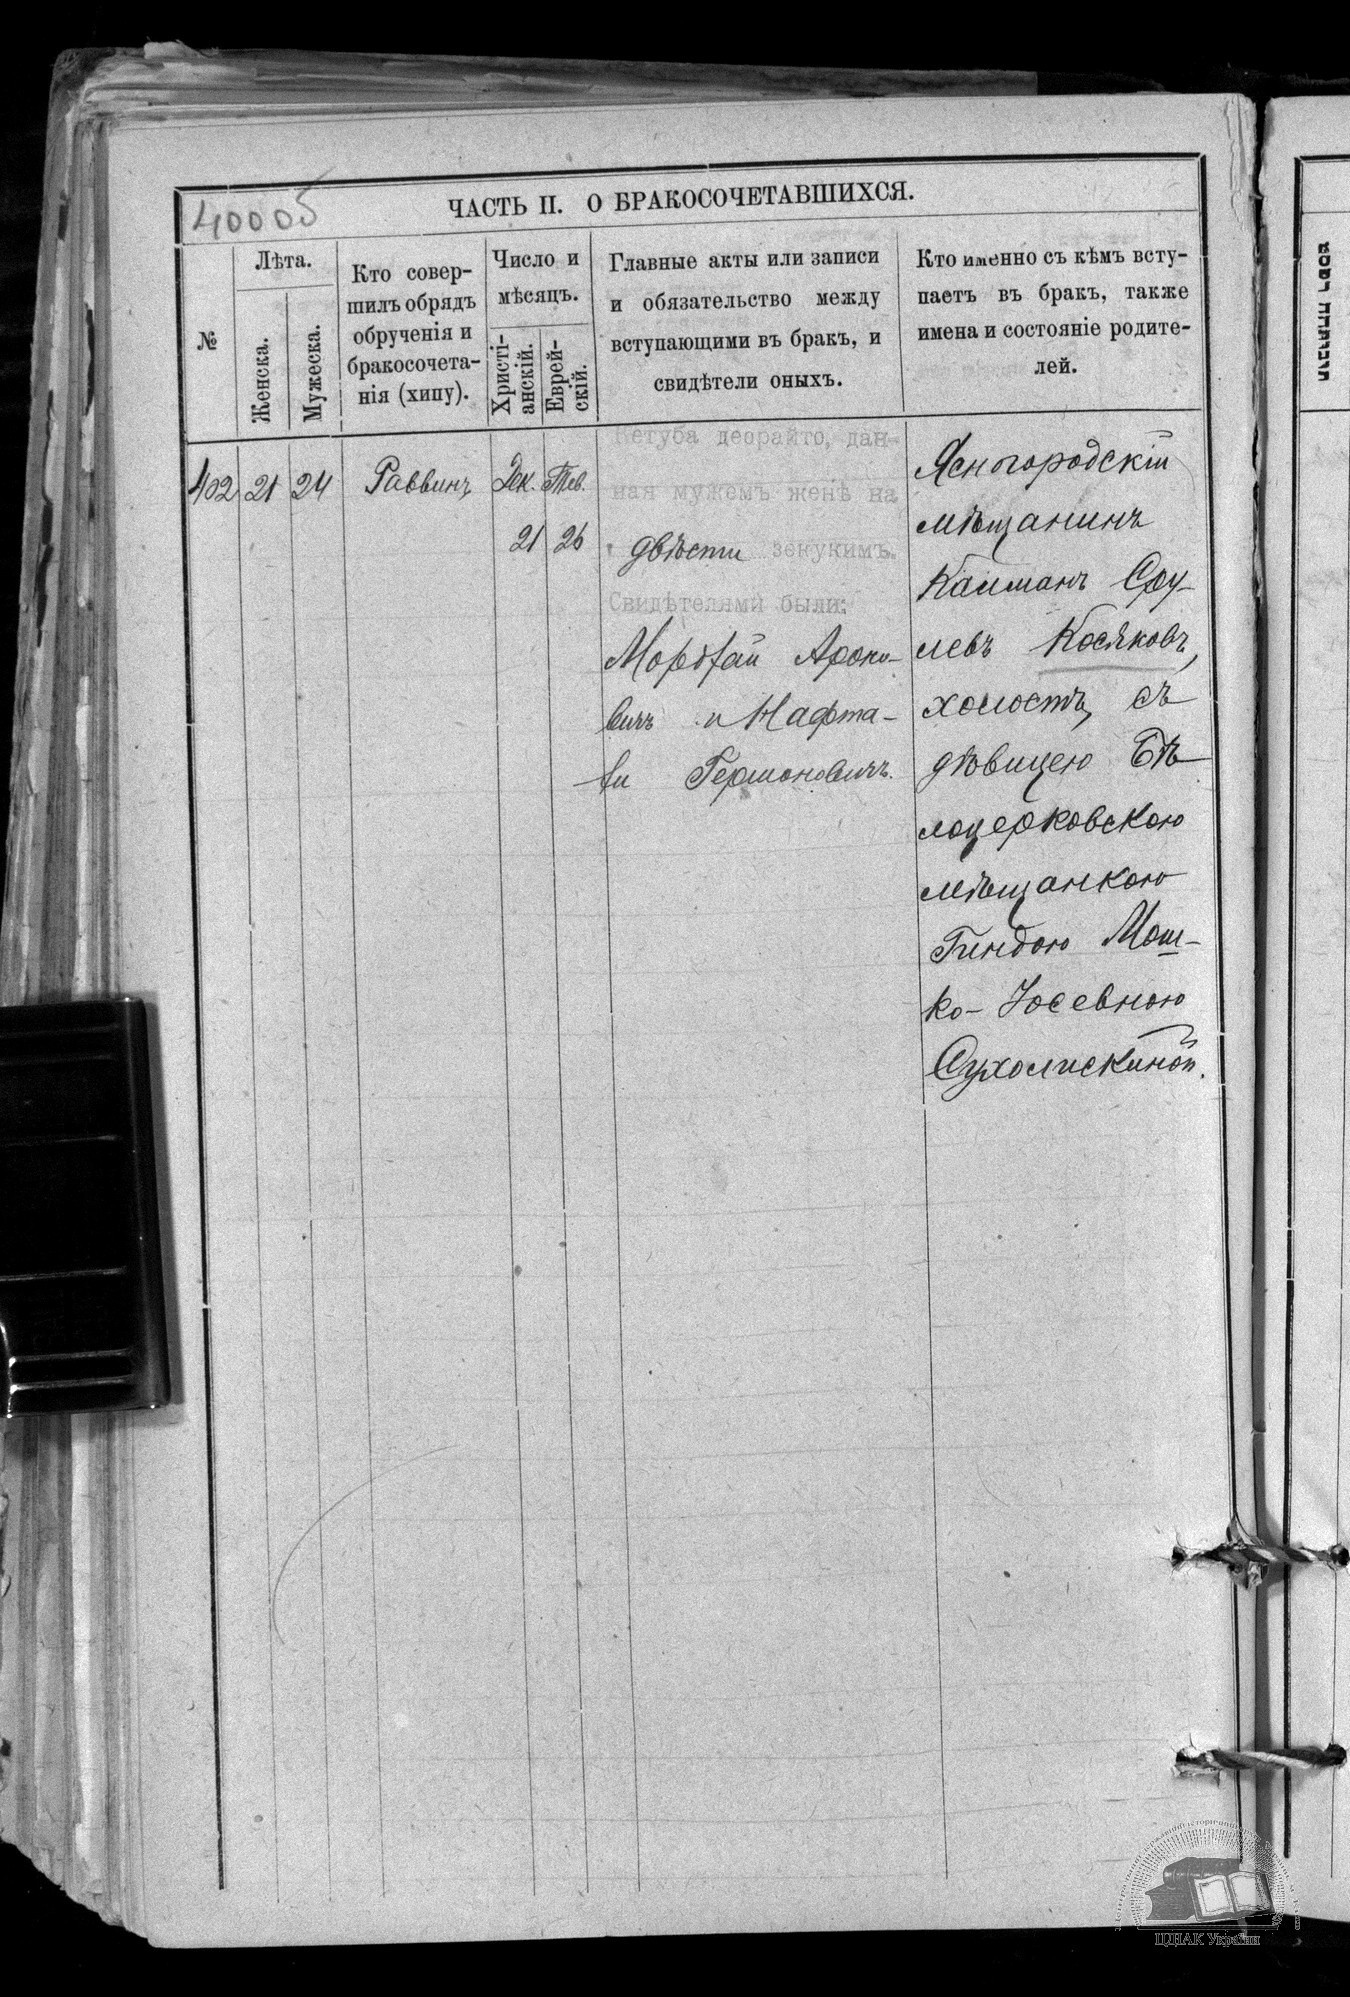 40005
ЧАСТЬ II. О БРАКОСОЧЕТАВШИХСЯ.
№
Лѣта.
Женска.
Мужеска.
Кто совер-
шилъ обрядъ
обрученія и
бракосочета-
нія (хипу).
Число и
мѣсяцъ.
Христі-
анскій.
Еврей-
скій.
Главные акты или записи
и обязательство между
вступающими въ бракъ, и
свидѣтели оныхъ.
Кто именно съ кѣмъ всту-
паетъ въ бракъ, также
имена и состояніе родите-
лей.
402 21 24 Раввинъ Дек. Тев.
21 26
Кетуба деорайто, дан-
ная мужемъ женѣ на
двѣсти зекукимъ.
Свидѣтелями были:
Мордхай Ароно-
вичъ и Нафта-
ли Гершоновичъ.
Ясногородскій
мѣщанинъ
Калманъ Сру-
левъ Косяковъ,
холостъ, съ
дѣвицею Бѣ-
лоцерковскою
мѣщанкою
Гиндою Мош-
ко-Іосевною
Сухолискиной.
ЦДІАК України